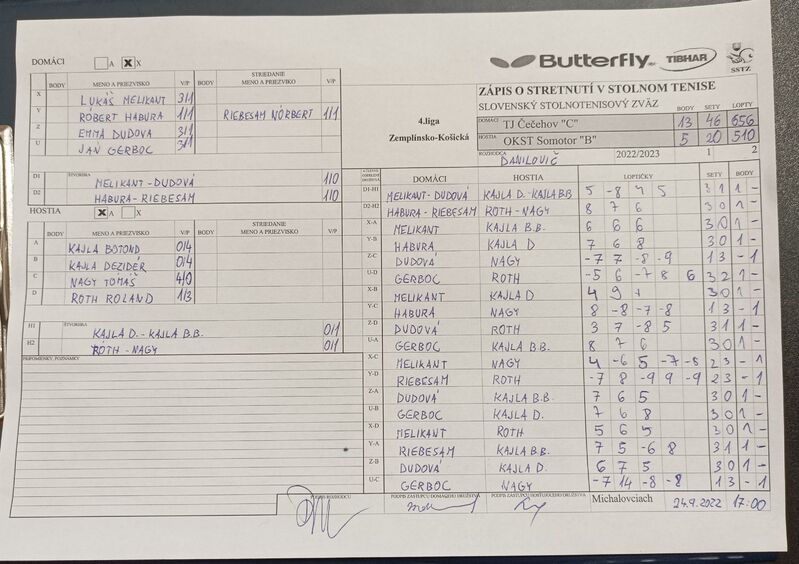 DOMÁCI A X X
Butterfly TIBHAR SSTZ
BODY MENO A PRIEZVISKO V/P BODY STRIEDANIE MENO A PRIEZVISKO V/P
X LUKÁŠ MELIKANT 3/1
Y RÓBERT HABURA 1/1 RIEBESAM NÓRBERT 1/1
Z EMMA DUDOVÁ 3/1
U JÁN GERBOC 3/1
ŠTVORHRA
D1 MELIKANT-DUDOVÁ 1/0
D2 HABURA-RIEBESAM 1/0
HOSTIA X A X
BODY MENO A PRIEZVISKO V/P BODY STRIEDANIE MENO A PRIEZVISKO V/P
A KAJLA BOTOND 0/4
B KAJLA DEZIDÉR 0/4
C NAGY TOMÁŠ 4/0
D ROTH ROLAND 1/3
ŠTVORHRA
H1 KAJLA D. - KAJLA B.B. 0/1
H2 ROTH - NAGY 0/1
PRIPOMIENKY, POZNÁMKY
4.liga
Zemplínsko-Košická
ZÁPIS O STRETNUTÍ V STOLNOM TENISE
SLOVENSKÝ STOLNOTENISOVÝ ZVÄZ BODY SETY LOPTY
DOMÁCI TJ Čečehov "C" 13 46 656
HOSTIA OKST Somotor "B" 5 20 510
ROZHODCA DANILOVIČ 2022/2023 1 2
DOMÁCI HOSTIA LOPTIČKY SETY BODY
D1-H1 MELIKANT-DUDOVÁ KAJLA D.-KAJLA B.B 5 -8 4 5 3 1 1 -
D2-H2 HABURA - RIEBESAM ROTH-NAGY 8 7 6 3 0 1 -
X-A MELIKANT KAJLA B.B. 6 6 6 3 0 1 -
Y-B HABURA KAJLA D 7 6 8 3 0 1 -
Z-C DUDOVÁ NAGY -7 7 -8 -9 1 3 - 1
U-D GERBOC ROTH -5 6 -7 8 6 3 2 1 -
X-B MELIKANT KAJLA D 4 9 3 0 1 -
Y-C HABURA NAGY 8 -8 -7 -8 1 3 - 1
Z-D DUDOVÁ ROTH 3 7 -8 5 3 1 1 -
U-A GERBOC KAJLA B.B. 8 7 6 3 0 1 -
X-C MELIKANT NAGY 4 -6 5 -7 -8 2 3 - 1
Y-D RIEBESAM ROTH -7 8 -9 9 -9 2 3 - 1
Z-A DUDOVÁ KAJLA B.B. 7 6 5 3 0 1 -
U-B GERBOC KAJLA D. 7 6 8 3 0 1 -
X-D MELIKANT ROTH 5 6 5 3 0 1 -
Y-A RIEBESAM KAJLA B.B. 7 5 -6 8 3 1 1 -
Z-B DUDOVÁ KAJLA D. 6 7 5 3 0 1 -
U-C GERBOC NAGY -7 14 -8 -8 1 3 - 1
PODPIS ROZHODCU PODPIS ZÁSTUPCU DOMÁCEHO DRUŽSTVA PODPIS ZÁSTUPCU HOSŤUJÚCEHO DRUŽSTVA Michalovciach 24.9.2022 17:00